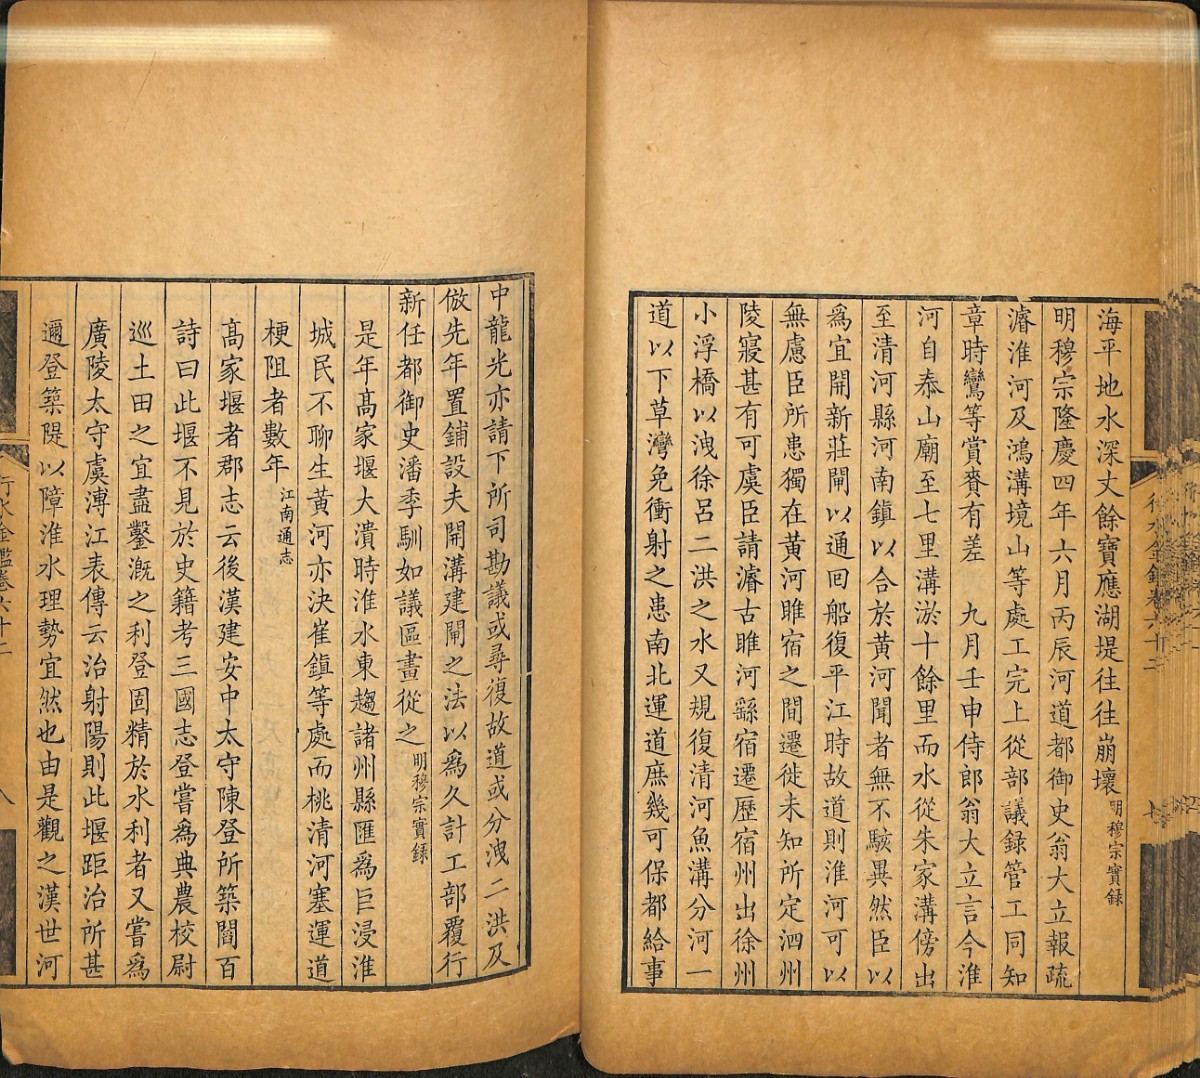 海平地水深丈餘寶應湖堤往往崩壞明穆宗實録
明穆宗隆慶四年六月丙辰河道都御史翁大立報疏
濬淮河及鴻溝境山等處工完上從部議録管工同知
章時鸞等賞賚有差　九月壬申侍郎翁大立言今淮
河自泰山廟至七里溝淤十餘里而水從朱家溝傍出
至清河縣河南鎮以合於黃河聞者無不駭異然臣以
爲宜開新莊閘以通回船復平江時故道則淮河可以
無慮臣所患獨在黃河睢宿之間遷徙未知所定泗州
陵寢甚有可虞臣請濬古睢河繇宿遷歷宿州出徐州
小浮橋以洩徐呂二洪之水又規復清河魚溝分河一
道以下草灣免衝射之患南北運道庶幾可保都給事
中龍光亦請下所司勘議或尋復故道或分洩二洪及
倣先年置鋪設夫開溝建閘之法以爲久計工部覆行
新任都御史潘季馴如議區畫從之明穆宗實録
是年高家堰大潰時淮水東趨諸州縣匯爲巨浸淮
城民不聊生黃河亦決崔鎮等處而桃清河塞運道
梗阻者數年江南通志
高家堰者郡志云後漢建安中太守陳登所築閻百
詩曰此堰不見於史籍考三國志登嘗爲典農校尉
巡土田之宜盡鑿漑之利登固精於水利者又嘗爲
廣陵太守虞溥江表傳云治射陽則此堰距治所甚
邇登築隄以障淮水理勢宜然也由是觀之漢世河
行水金鑑卷六十二